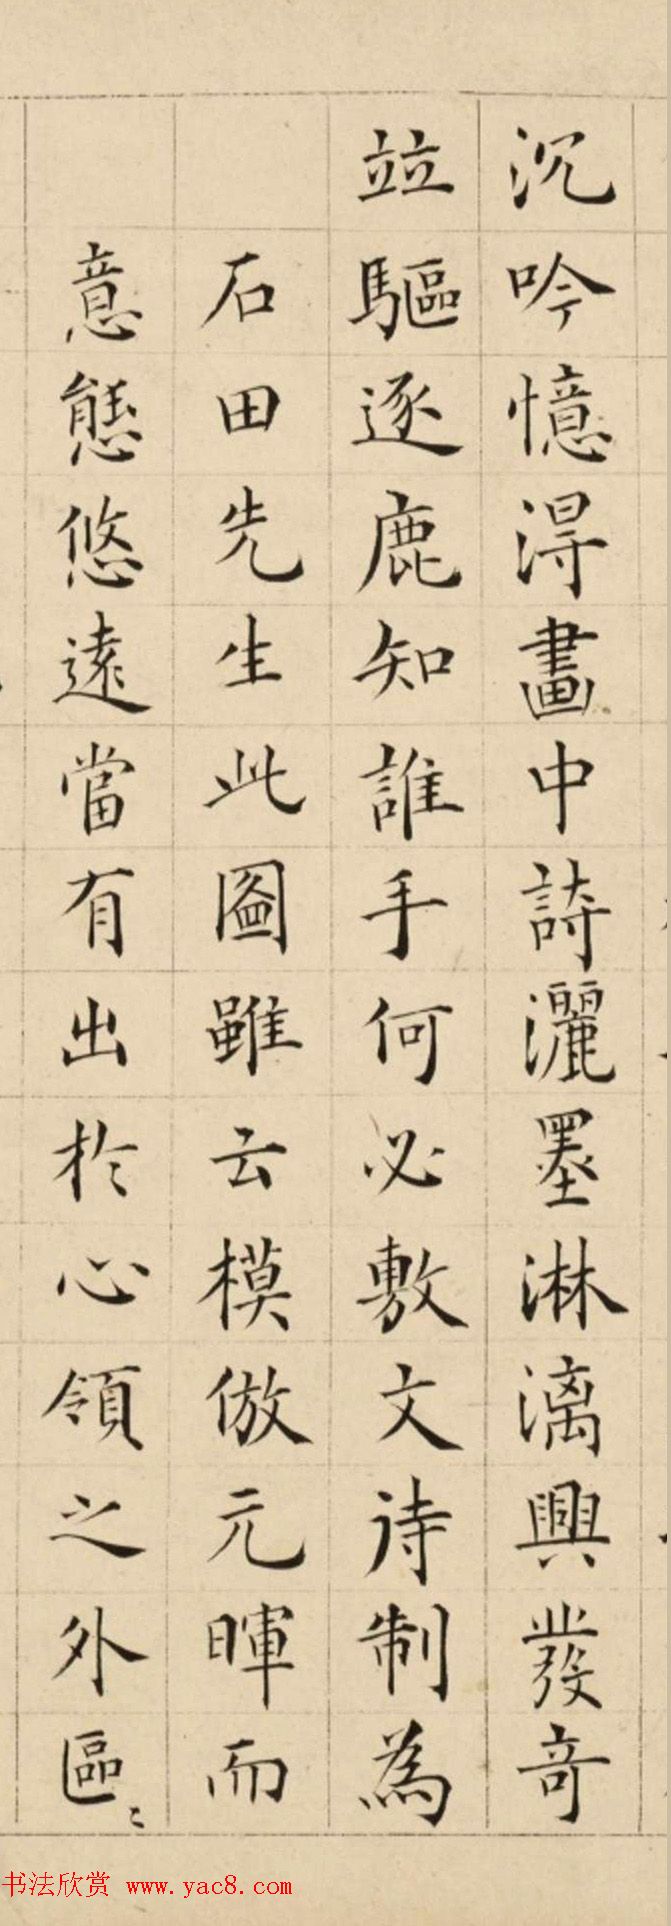 沉吟憶淂畫中詩灑墨淋漓興發奇
竝驅逐鹿知誰手何必敷文待制為
石田先生此圖雖云模倣元暉而
意態悠遠當有出於心領之外區〻
书法欣赏 www.yac8.com